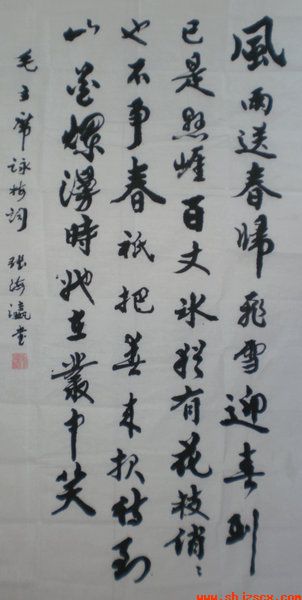 風雨送春歸飛雪迎春到
已是懸崖百丈冰猶有花枝俏〻
也不争春祇把春來报待到
山花爛漫時她在叢中笑
毛主席詠梅詞 張海瀛書
www.shjzscx.com